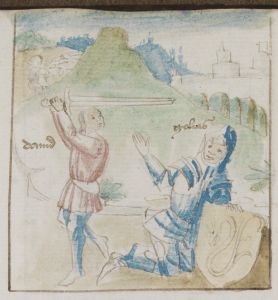 dauid
golias